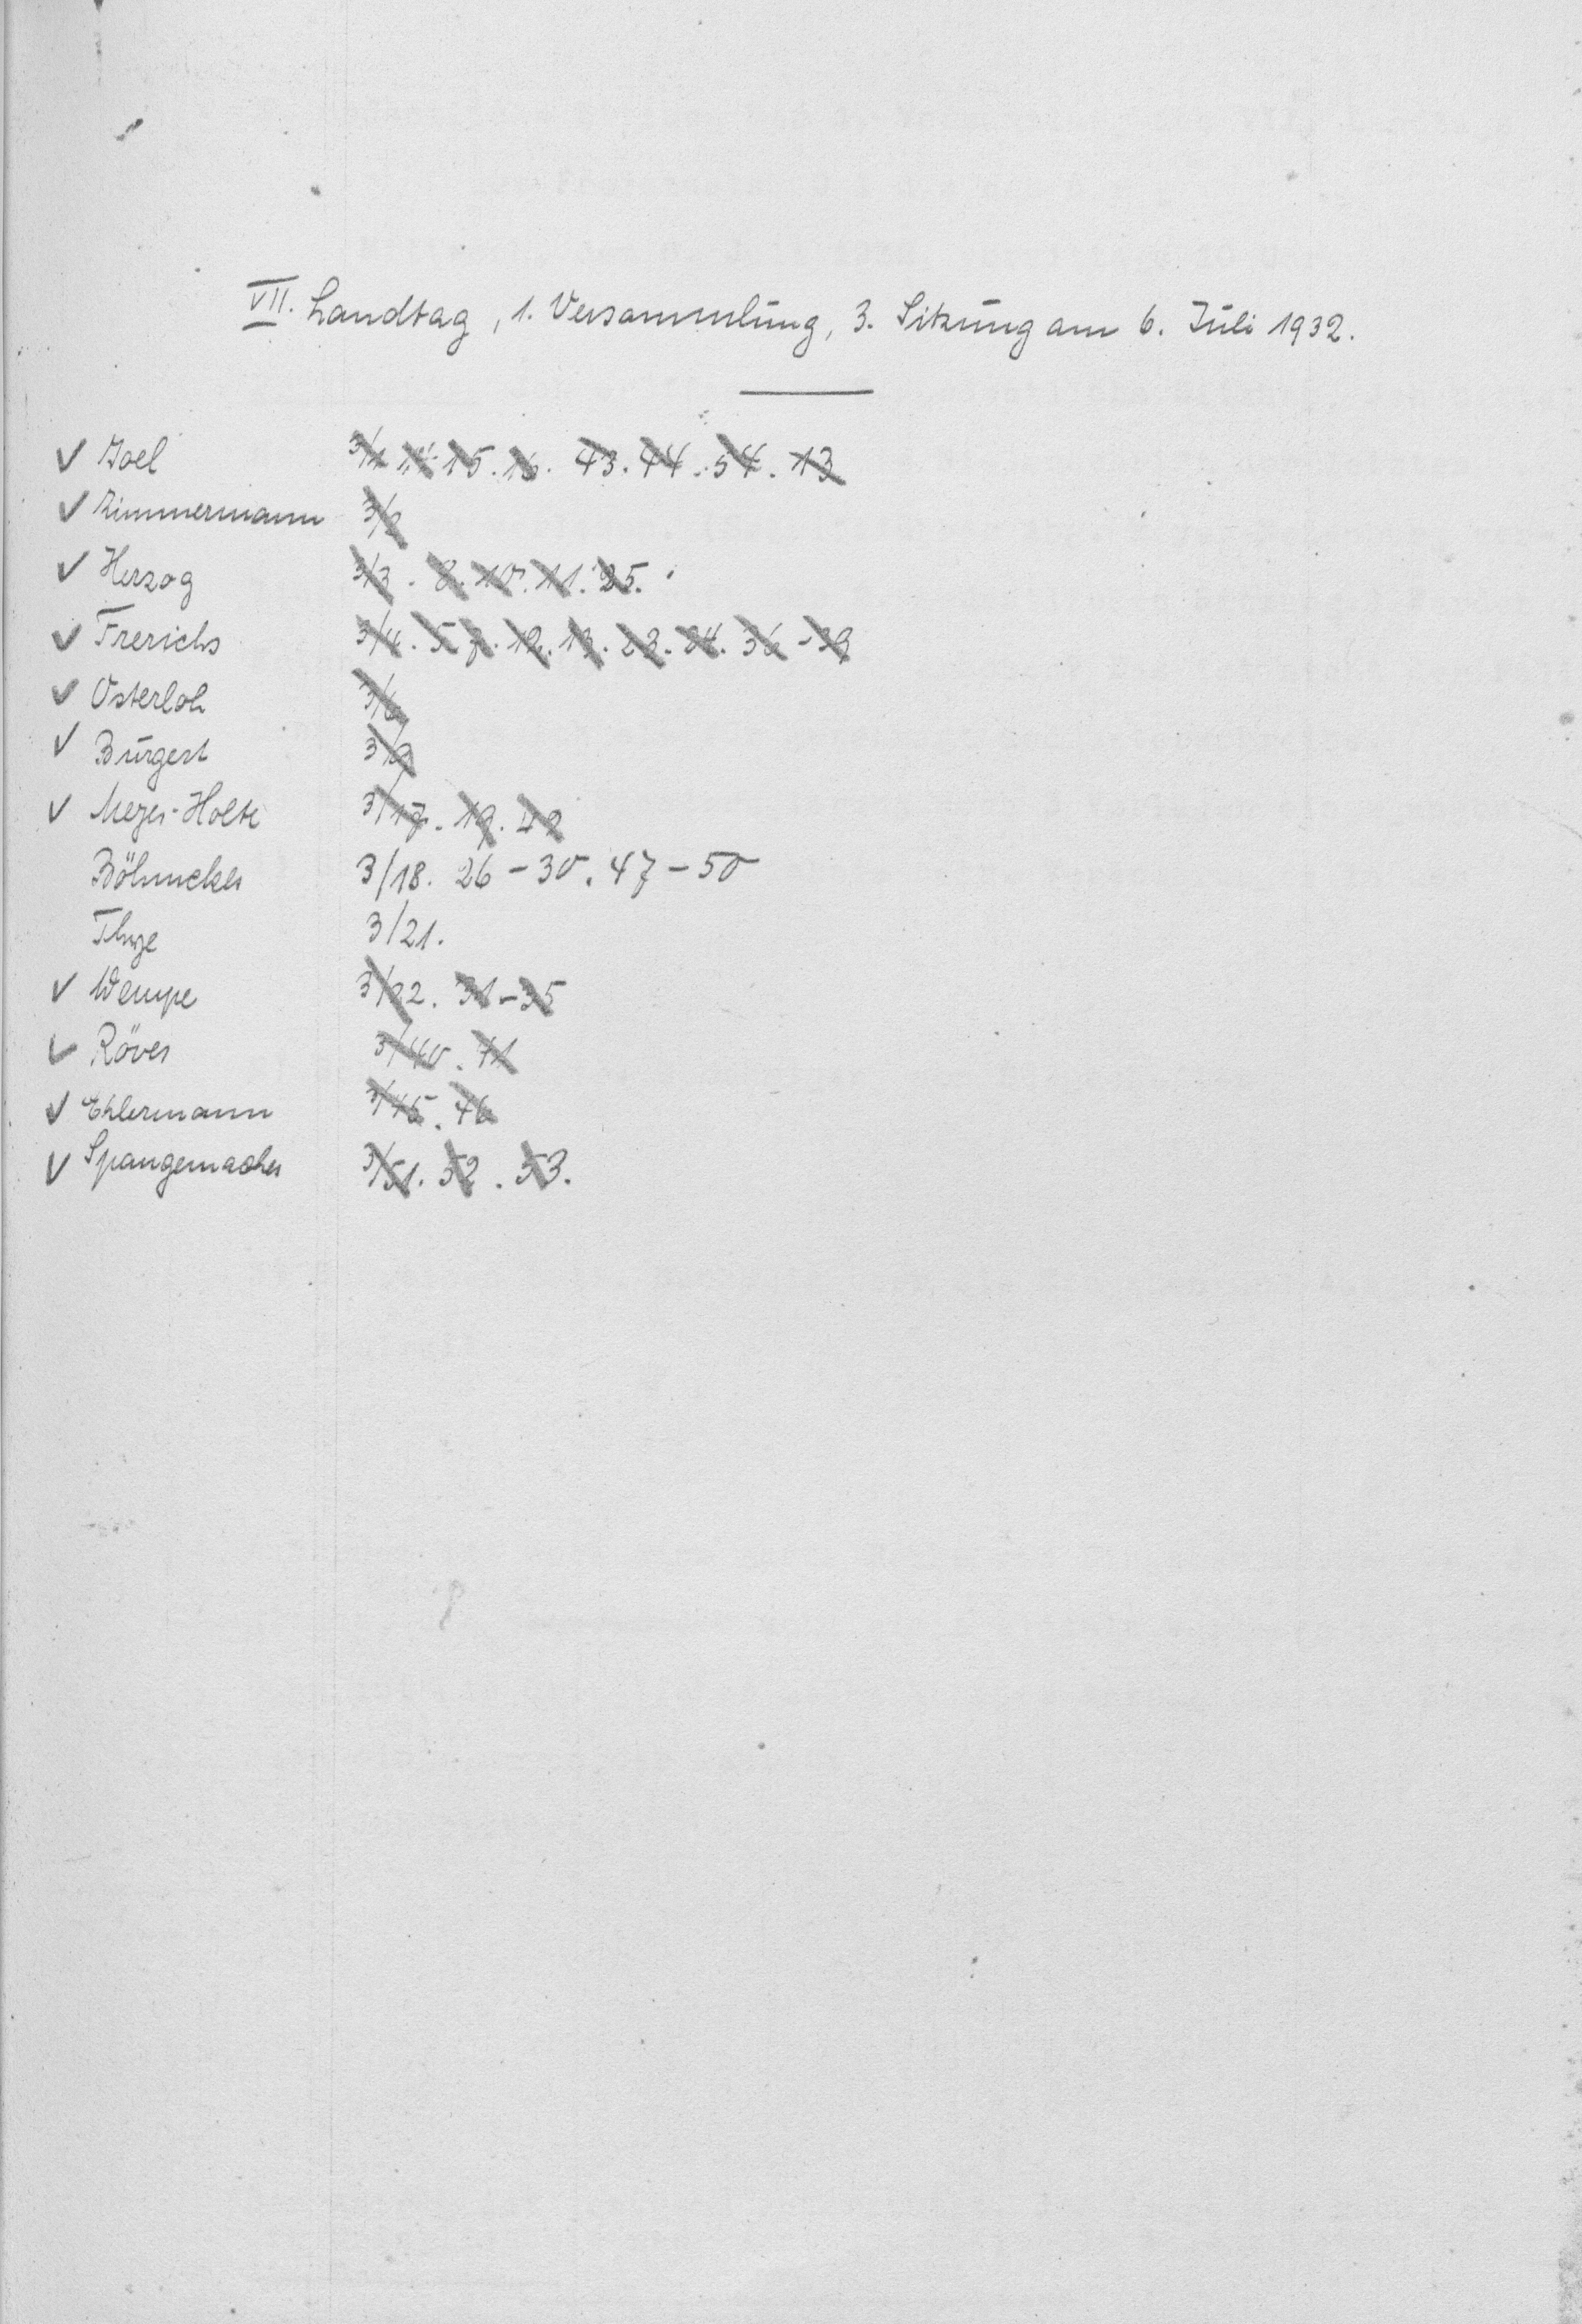 VII. Landtag, 1. Versammlung, 3. Sitzung am 6. Juli 1932.
✓ Joel 3/1 14. 15. 16. 43. 44. 54. 13
✓ Zimmermann 3/2
✓ Herzog 3/3. 8. 10. 11. 25.
✓ Frerichs 3/4. 5. 7. 12. 13. 23. 24. 36-39
✓ Osterloh 3/6
✓ Bürgert 3/9
✓ Meyer-Holte 3/17. 19. 42
Böhmcker 3/18. 26-30. 47-50
Thye 3/21.
✓ Wempe 3/22. 31-35
✓ Röver 3/40. 41
✓ Ehlermann 3/45. 46
✓ Spangemacher 3/51. 52. 53.